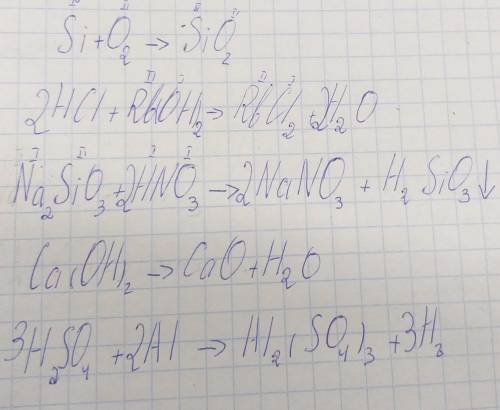 IV II IV II
Si + O₂ → SiO₂
II I II I
2HCl + Rb(OH)₂ → RbCl₂ + 2H₂O
I II I I
Na₂SiO₃ + 2HNO₃ → 2NaNO₃ + H₂SiO₃↓
Ca(OH)₂ → CaO + H₂O
3H₂SO₄ + 2Al → Al₂(SO₄)₃ + 3H₂